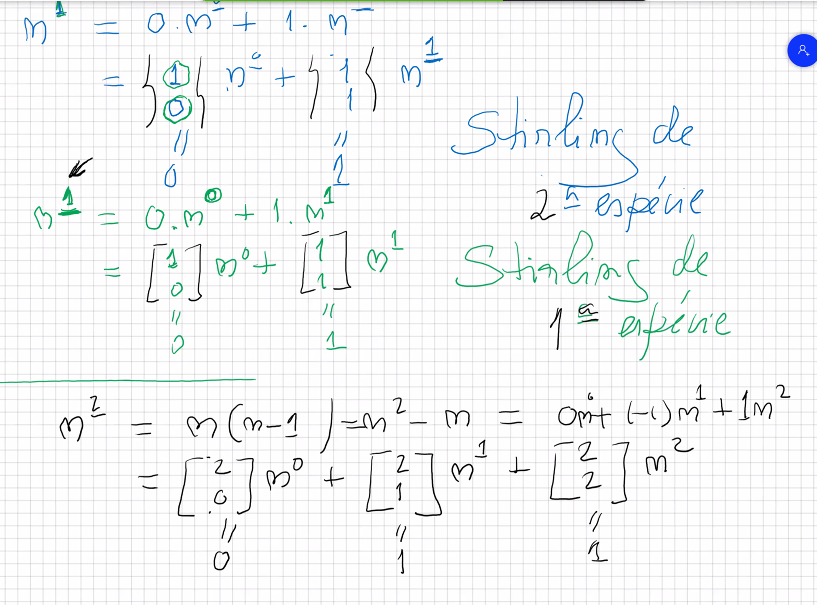 n^1 = 0.n^0 + 1.n^1
= {1 0} n^0 + {1 1} n^1
" "
0 1
Stirling de
2ª espécie
n^1 = 0.n^0 + 1.n^1
= [1 0] n^0 + [1 1] n^1
" "
0 1
Stirling de
1ª espécie
n^2 = n(n-1) = n^2 - n = 0n^0 + (-1)n^1 + 1n^2
= [2 0] n^0 + [2 1] n^1 + [2 2] n^2
" " "
0 1 1